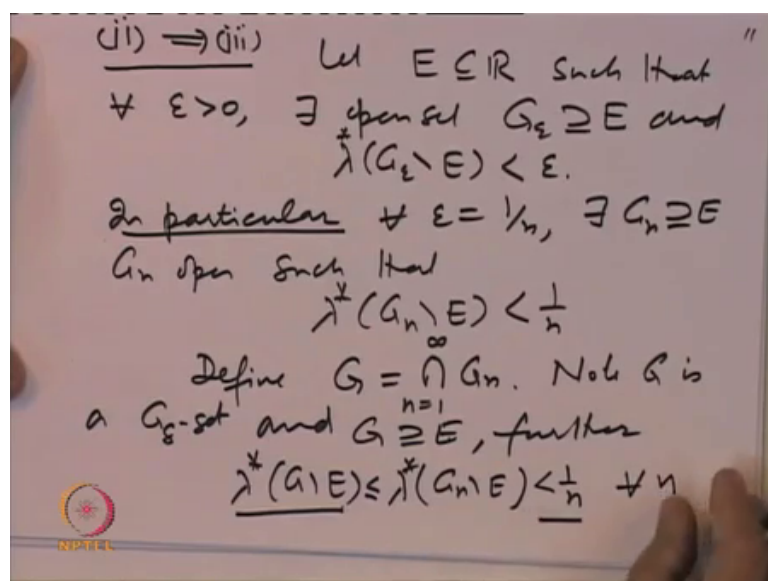 (ii) ⟹ (iii) Let E ⊆ ℝ such that
∀ ε > 0, ∃ open set G_ε ⊇ E and
λ*(G_ε \ E) < ε.
In particular ∀ ε = 1/n, ∃ G_n ⊇ E
G_n open such that
λ*(G_n \ E) < 1/n
Define G = ∩_{n=1}^{∞} G_n. Note G is
a G_δ-set and G ⊇ E, further
λ*(G \ E) ≤ λ*(G_n \ E) < 1/n ∀ n
NPTEL